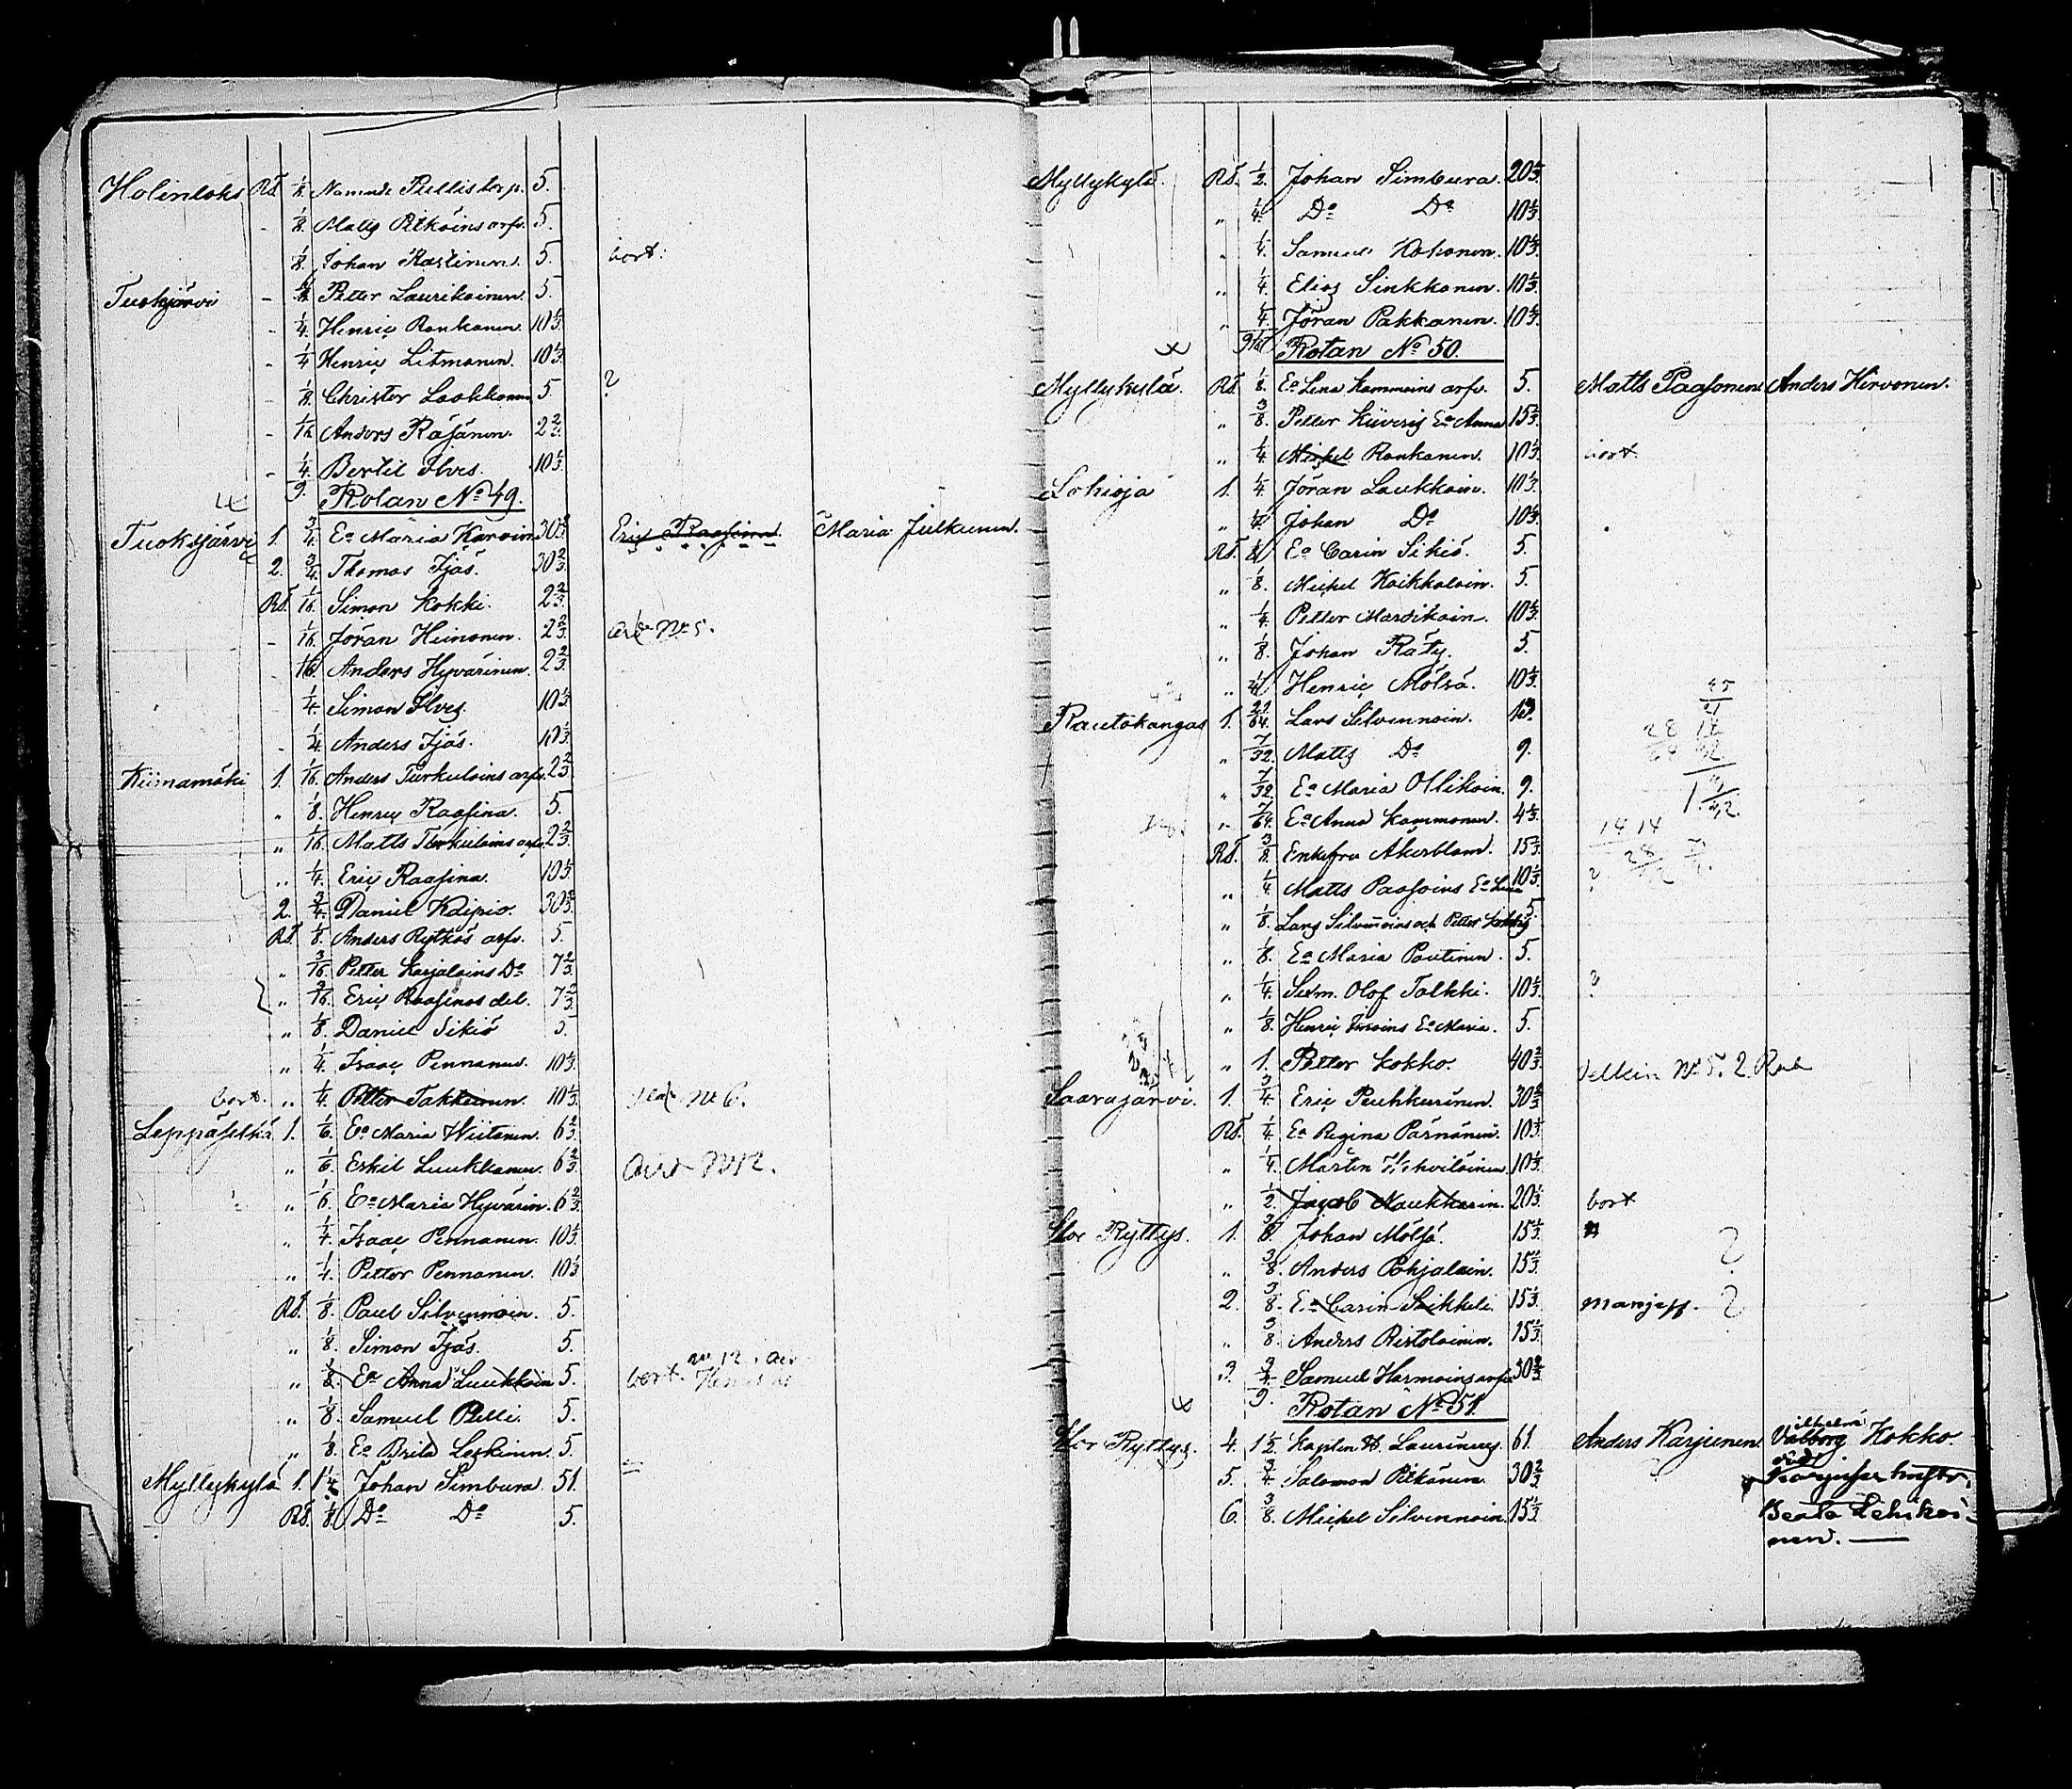 Holinloks Rś. 1/8. Namnde Pellis torp. 5.
- 1/8. Matts Pitkäins arfv. 5.
1/8. Johan Rastinen. 5. bort.
Tuoksjärvi - 1/8. Petter Laurikainen. 5.
- 1/4. Henric Ronkanen. 10 1/3.
- 1/4 Henric Litmanen. 10 1/3.
- 1/8. Christer Laakkonen 5 ?
- 1/16 Anders Räsänen. 2 2/3.
- 1/4. Bertil Ilves. 10 1/3.
9. Rotan No 49.
Tuoksjärvi 1. 3/4. Ea Maria Karvin 30 2/3 Eric Raasina. Maria Julkunen.
2. 3/4. Thomas Ijäs. 30 2/3.
Rś. 1/16. Simon Kokki. 2 2/3.
- 1/16. Jöran Heinonen. 2 2/3. No 5.
1/16 Anders Hyvärinen. 2 2/3
1/4. Simon Ilves. 10 1/3
- 1/4 Anders Ijäs. 10 1/3
Kiinamäki 1. 1/16. Anders Turkulains arfv. 2 2/3
" 1/8. Henric Raasina. 5.
" 1/16. Matts Turkulains arfv. 2 2/3
" 1/4. Eric Raasina. 10 1/3
2. 3/4. Daniel Kaipio. 30 2/3.
Rś. 1/8. Anders Rytkös arfv. 5.
" 3/16. Petter Karjalains Do 7 2/3
" 3/16. Eric Raasinas del. 7 2/3.
" 1/8. Daniel Sikiö 5.
" 1/4. Isaac Pennanen. 10 1/3.
bort. " 1/4. Petter Takkinen. 10 1/3. No 6.
Leppäselkä 1. 1/6. Ea Maria Wiitanen. 6 2/3.
" 1/6. Eskil Luukkanen. 6 2/3. No 12.
" 1/6 Ea Maria Hyvärin. 6 2/3.
" 1/4. Isaac Pennanen. 10 1/3.
" 1/4. Petter Pennanen. 10 1/3
Rś. 1/8. Paul Silvennoin. 5.
" 1/8. Simon Ijäs. 5.
" 1/8. Ea Anna Luukkain 5. bort.
" 1/8. Samuel Pelli. 5.
" 1/8. Ea Brita Leskinen. 5.
Myllykylä 1. 1 1/4 Johan Simbura. 51.
Rś. 1/8. Do Do 5.
Myllykylä. Rś. 1/2. Johan Simbura. 20 1/3.
" 1/4. Do Do 10 1/3.
" 1/4. Samuel Kokonen. 10 1/3.
" 1/4. Elias Sinkkonen. 10 1/3.
" 1/4. Jöran Pakkanen. 10 1/3.
Rotan No 50.
Myllykylä. Rś. 1/8. Ea Lena Kammoins arfv. 5. Matts Paasonen Anders Hirvonen.
" 3/8. Petter Kiiveris Ea Anna 15 1/3.
" 1/4. Michel Ronkanen. 10 1/3. bort.
Lohioja 1. 1/4 Jöran Laukkain. 10 1/3.
" 1/4 Johan Do 10 1/3.
Rś. 1/8 Ea Carin Sikiö. 5.
" 1/8. Michel Kaikkolain. 5.
" 1/4. Petter Mardikain. 10 1/3.
" 1/8. Johan Räty. 5.
" 1/4 Henric Mölsä. 10 1/3.
Rautokangas 1. 21/64. Lars Silvennoin. 13.
" 7/32. Matts Do 9.
" 7/32. Ea Maria Ollikain. 9.
" 7/64. Ea Anna Kammonen. 4 1/3.
Rś. 3/8. Enkefru Åkerblom. 15 1/3.
" 1/4. Matts Paasoins Ea Lena 10 1/3. ?
" 1/8. Lars Silvennoins och Petter 5
" 1/8. Ea Maria Pautinen. 5.
" 1/4. Olof Talkki. 10 1/3. ?
" 1/8. Henric Ea Maria. 5.
" 1. Petter Kokko. 40 2/3. No 5. 2.
Saarajärvi. 1. 3/4. Eric Puhkurinen. 30 2/3
Rś. 1/4. Ea Regina Pärnänen. 10 1/3.
" 1/4. Martin Wehviläinen. 10 1/3.
" 1/2. Jacob Naukkarin. 20 1/3. bort
Stor Ryttys. 1. 3/8. Johan Mölsä. 15 1/3. ?
" 3/8. Anders Pohjalain. 15 1/3.
2. 3/8. Ea Carin Seikkeli. 15 1/3. ?
" 3/8. Anders Ristolainen. 15 1/3.
3. 3/4. Samuel Harmoins arfv. 30 2/3.
9. Rotan No 51.
Stor Ryttys. 4. 1 1/2. Kapten H. Laurinus 61. Anders Karjunen. Kokko.
5. 3/4. Salomon Pitkänen. 30 2/3.
6. 3/8. Michel Silvennoin. 15 1/3. Beata Lehikoi-
nen.